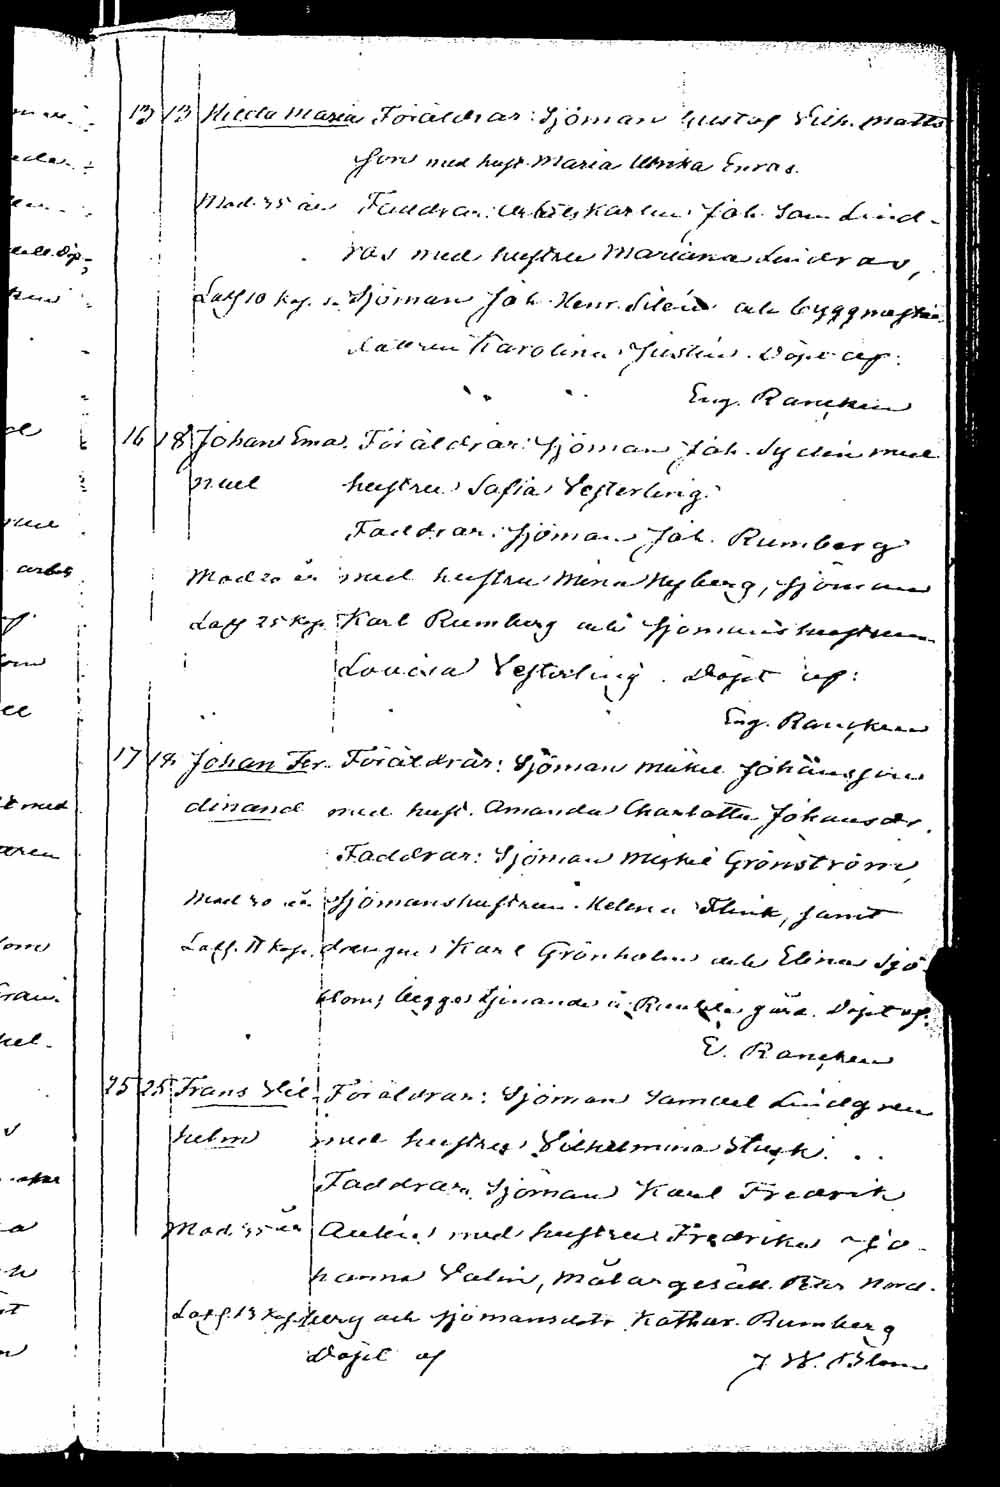 13 13 Hilda Maria Föräldrar: Sjöman Gustaf Vilh. Matts
son med hust. Maria Ulrika Enros.
Mod. 35 år Faddrar: Arbetskarlen Joh. Sam. Lind-
ros med hustru Mariana Lindros,
Lösf 10 kop. Sjöman Joh. Henr. Silén och byggmästar
dottren Karolina Justén. Döpt af:
Eng. Rancken
16 18 Johan Ema- Föräldrar: Sjöman Joh. Sydén med
nuel hustru Sofia Vesterling.
Faddrar: Sjöman Joh. Rumberg
Mod 20 år med hustru Mina Nyberg, sjöman
Lösf 25 kop. Karl Rumberg och sjömanshustrun
Lovisa Vesterling. Döpt af:
Eng. Rancken
17 18 Johan Fer- Föräldrar: Sjöman Mickel Johansson
dinand med hust. Amanda Charlotta Johansdr.
Faddrar: Sjöman Mickel Grönström,
Mod 30 år sjömanshustrun Helena Flink, samt
Lösf. 11 kop. drengen Karl Grönholm och Elina Sjö-
blom, begge tjenande å gård. Döpt af.
E. Rancken
25 25 Frans Vil- Föräldrar: Sjöman Samuel Lindgren
helm med hustru Vilhelmina
Faddrar: Sjöman Karl Fredrik
Mod. 35 år med hustru Fredrika Jo-
hanna Valin, Målargesäll Peter Nord-
Lösf. 13 kop. berg och sjömansdotr Kathar. Rumberg
Döpt af J. W. Blom